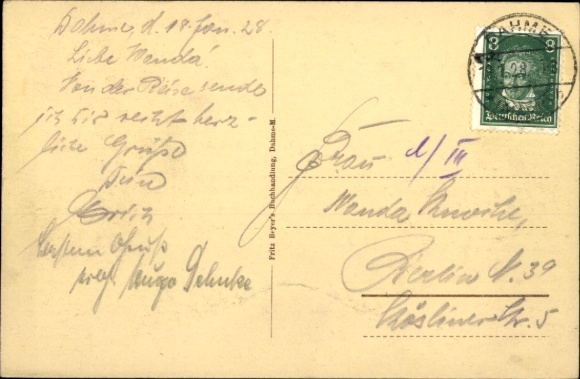 Dahme, d. 18. Jan. 28.
Liebe Wanda!
Von der Reise sende
ich dir recht herz-
liche Grüße
Dein
Erich
Besten Gruß
Hugo Dehnke
Fritz Beyer's Buchhandlung, Dahme-M.
DAHME
8 8
Deutsches Reich
Frau
Wanda
Berlin N. 39
Kösliner Str. 5